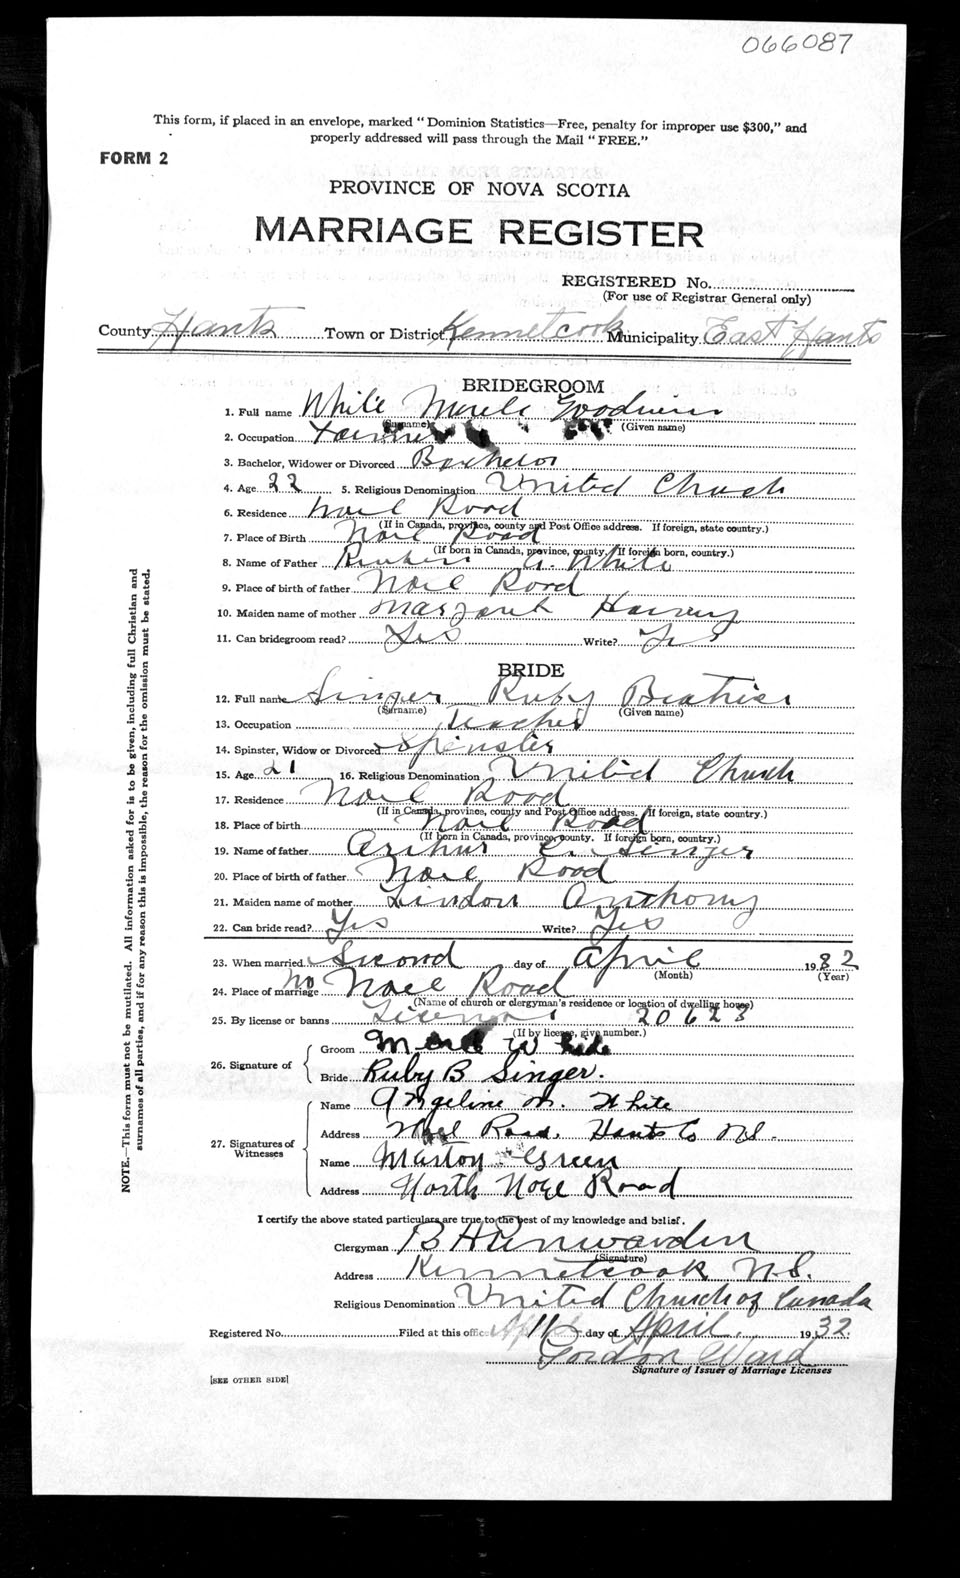 066087
This form, if placed in an envelope, marked "Dominion Statistics—Free, penalty for improper use $300," and
properly addressed will pass through the Mail "FREE."
FORM 2
PROVINCE OF NOVA SCOTIA
MARRIAGE REGISTER
REGISTERED No.
(For use of Registrar General only)
County Hants Town or District Kennetcook Municipality East Hants
BRIDEGROOM
1. Full name White Merle Goodwin
(Surname) (Given name)
2. Occupation Farmer
3. Bachelor, Widower or Divorced Bachelor
4. Age 22 5. Religious Denomination United Church
6. Residence Noel Road
(If in Canada, province, county and Post Office address. If foreign, state country.)
7. Place of Birth Noel Road
(If born in Canada, province, county. If foreign born, country.)
8. Name of Father Reuben A. White
9. Place of birth of father Noel Road
10. Maiden name of mother Margaret Harvey
11. Can bridegroom read? Yes Write? Yes
BRIDE
12. Full name Singer Ruby Beatrice
(Surname) (Given name)
13. Occupation Teacher
14. Spinster, Widow or Divorced Spinster
15. Age 21 16. Religious Denomination United Church
17. Residence Noel Road
(If in Canada, province, county and Post Office address. If foreign, state country.)
18. Place of birth Noel Road
(If born in Canada, province, county. If foreign born, country.)
19. Name of father Arthur E. Singer
20. Place of birth of father Noel Road
21. Maiden name of mother Lindon Anthony
22. Can bride read? Yes Write? Yes
23. When married Second day of April 1932
(Month) (Year)
24. Place of marriage no Noel Road
(Name of church or clergyman's residence or location of dwelling house)
25. By license or banns License 20623
(If by license, give number.)
26. Signature of
Groom Merle W
Bride Ruby B Singer.
27. Signatures of Witnesses
Name Angeline M. White
Address Noel Road. Hants Co N.S.
Name Marston Green
Address North Noel Road
I certify the above stated particulars are true to the best of my knowledge and belief.
Clergyman B H
(Signature)
Address Kennetcook N.S.
Religious Denomination United Church of Canada
Registered No. Filed at this office 11 day of April. 1932.
Gordon Ward
Signature of Issuer of Marriage Licenses
[SEE OTHER SIDE]
NOTE.—This form must not be mutilated. All information asked for is to be given, including full Christian and
surnames of all parties, and if for any reason this is impossible, the reason for the omission must be stated.